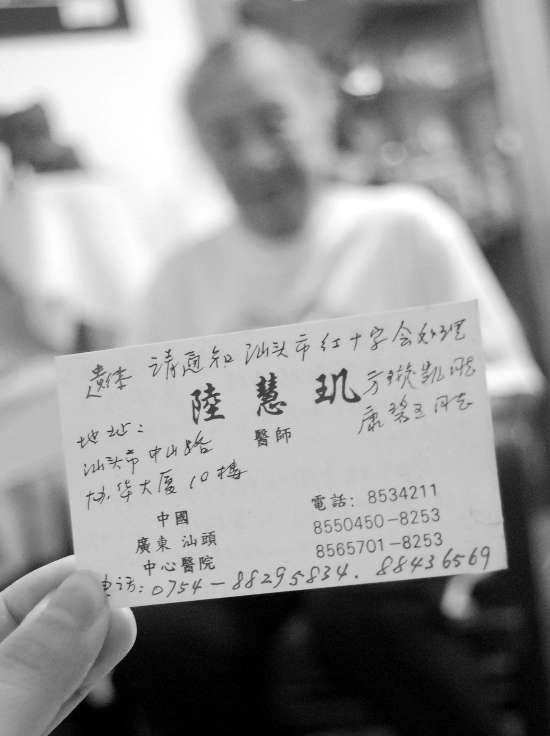 遗体 请通知 汕头市红十字会处理
陸 慧 玑
方璇凯同志
康碧玉同志
醫師
地址：
汕头市中山路
协华大厦10楼
中國
廣東 汕頭
中心醫院
電話：8534211
8550450-8253
8565701-8253
电话：0754-88295834. 88436569